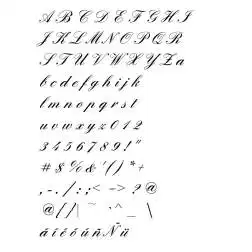 A B C D E F G H I
J K L M N O P Q R
S T U V W X Y Z a
b c d e f g h i j k
l m n o p q r s t
u v w x y z 0 1 2
3 4 5 6 7 8 9 ! "
# $ % & ' ( ) * +
, - . / : ; < - > ? @
@ [ / ] \ ~ ` ^ _ \
á í é ó ú ñ Ñ ü